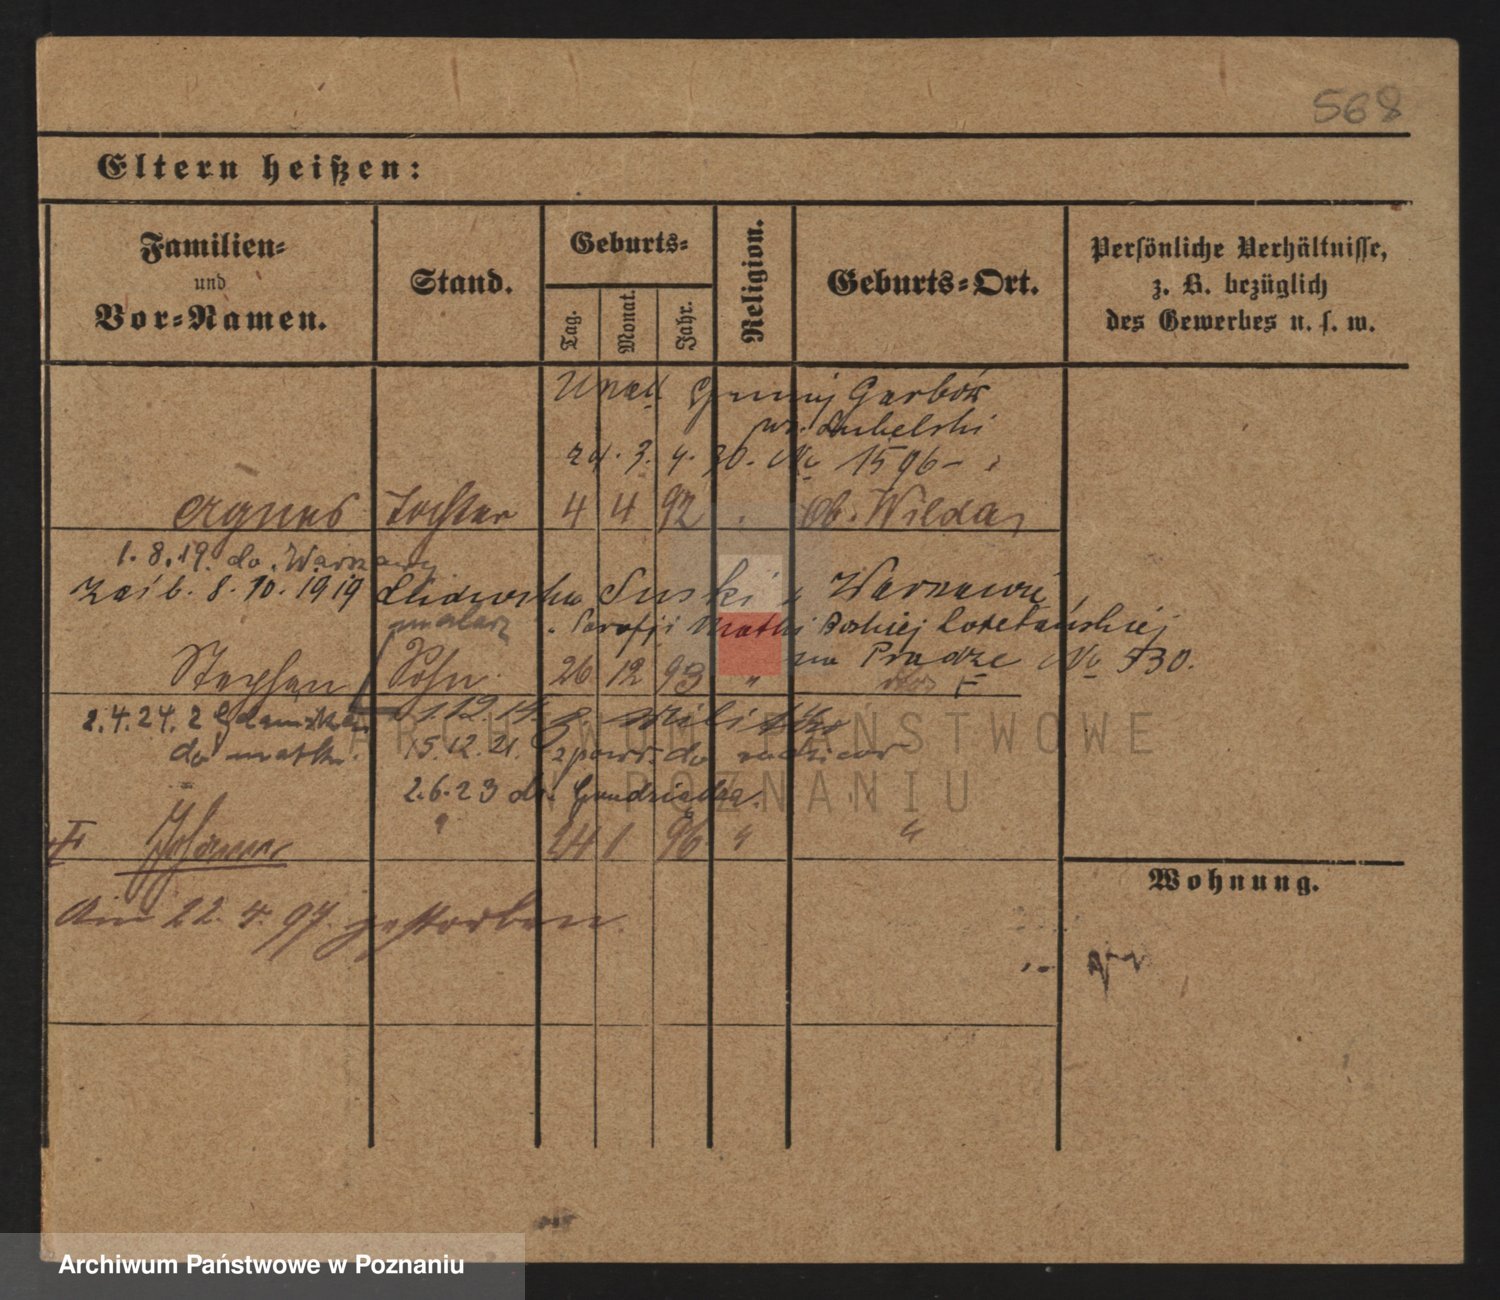 568
Eltern heißen:
Familien-
und
Vor-Namen.
Stand.
Geburts-
Tag.
Monat.
Jahr.
Religion.
Geburts-Ort.
Persönliche Verhältnisse,
z. B. bezüglich
des Gewerbes u. s. w.
Gminy Garbów
Lubelski
24. 3. 30. No 1596
Agnes Tochter 4 4 92 Ob. Wilda
1. 8. 19. do. Warszawy
8. 10. 1919 Ludwika Suski z Warszawie
malarz Parafji Matki Boskiej Loretańskiej
na Pradze No 530.
Stephan Sohn 26 12 93 "
2. 4. 24. z
do matki. 15. 12. 21. do
2. 6. 23 do Grudziądza.
Johann " 24 1 96 " "
Am 22. 4. 97. gestorben.
Wohnung.
ARCHIWUM PAŃSTWOWE
W POZNANIU
Archiwum Państwowe w Poznaniu